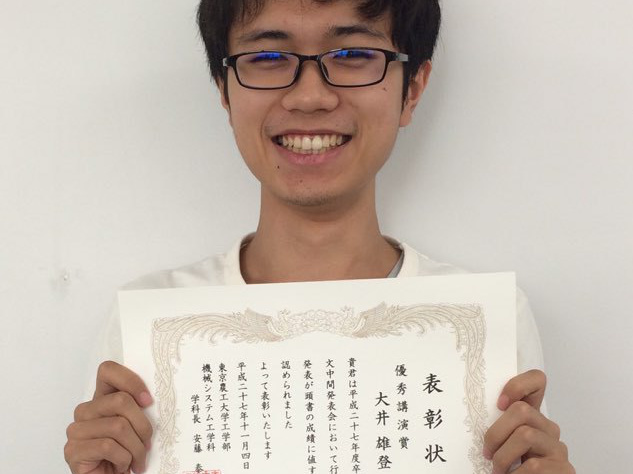 表彰状
優秀講演賞
大井 雄登
貴君は平成二十七年度卒
文中間発表会において行
発表が頭書の成績に値す
認められました
よって表彰いたします
平成二十七年十一月四日
東京農工大学工学部
機械システム工学科
学科長 安藤 泰